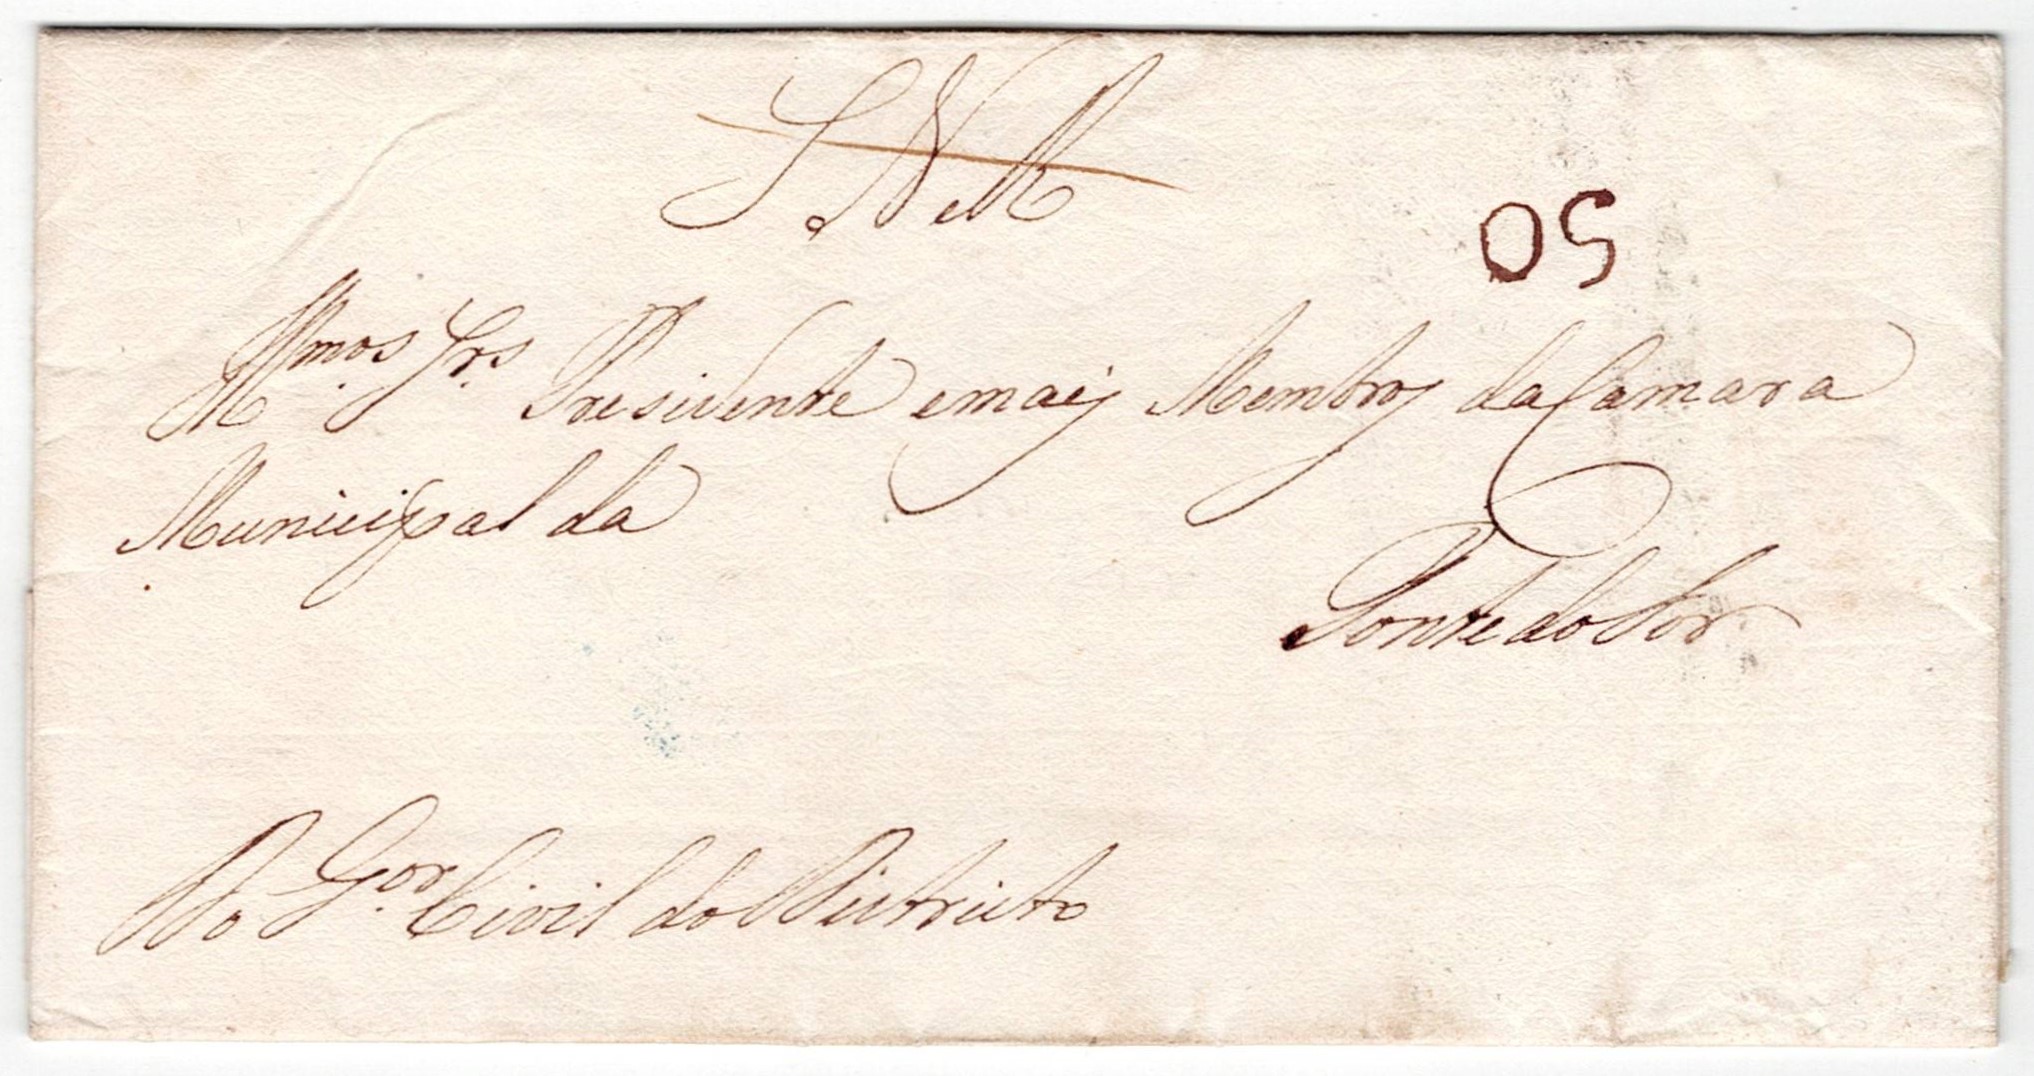 S. N. R.
50
Illmos. Srs. Presidente e mais Membros da Camara
Municipal da
Ponte do Sor
Do Gor. Civil do Districto